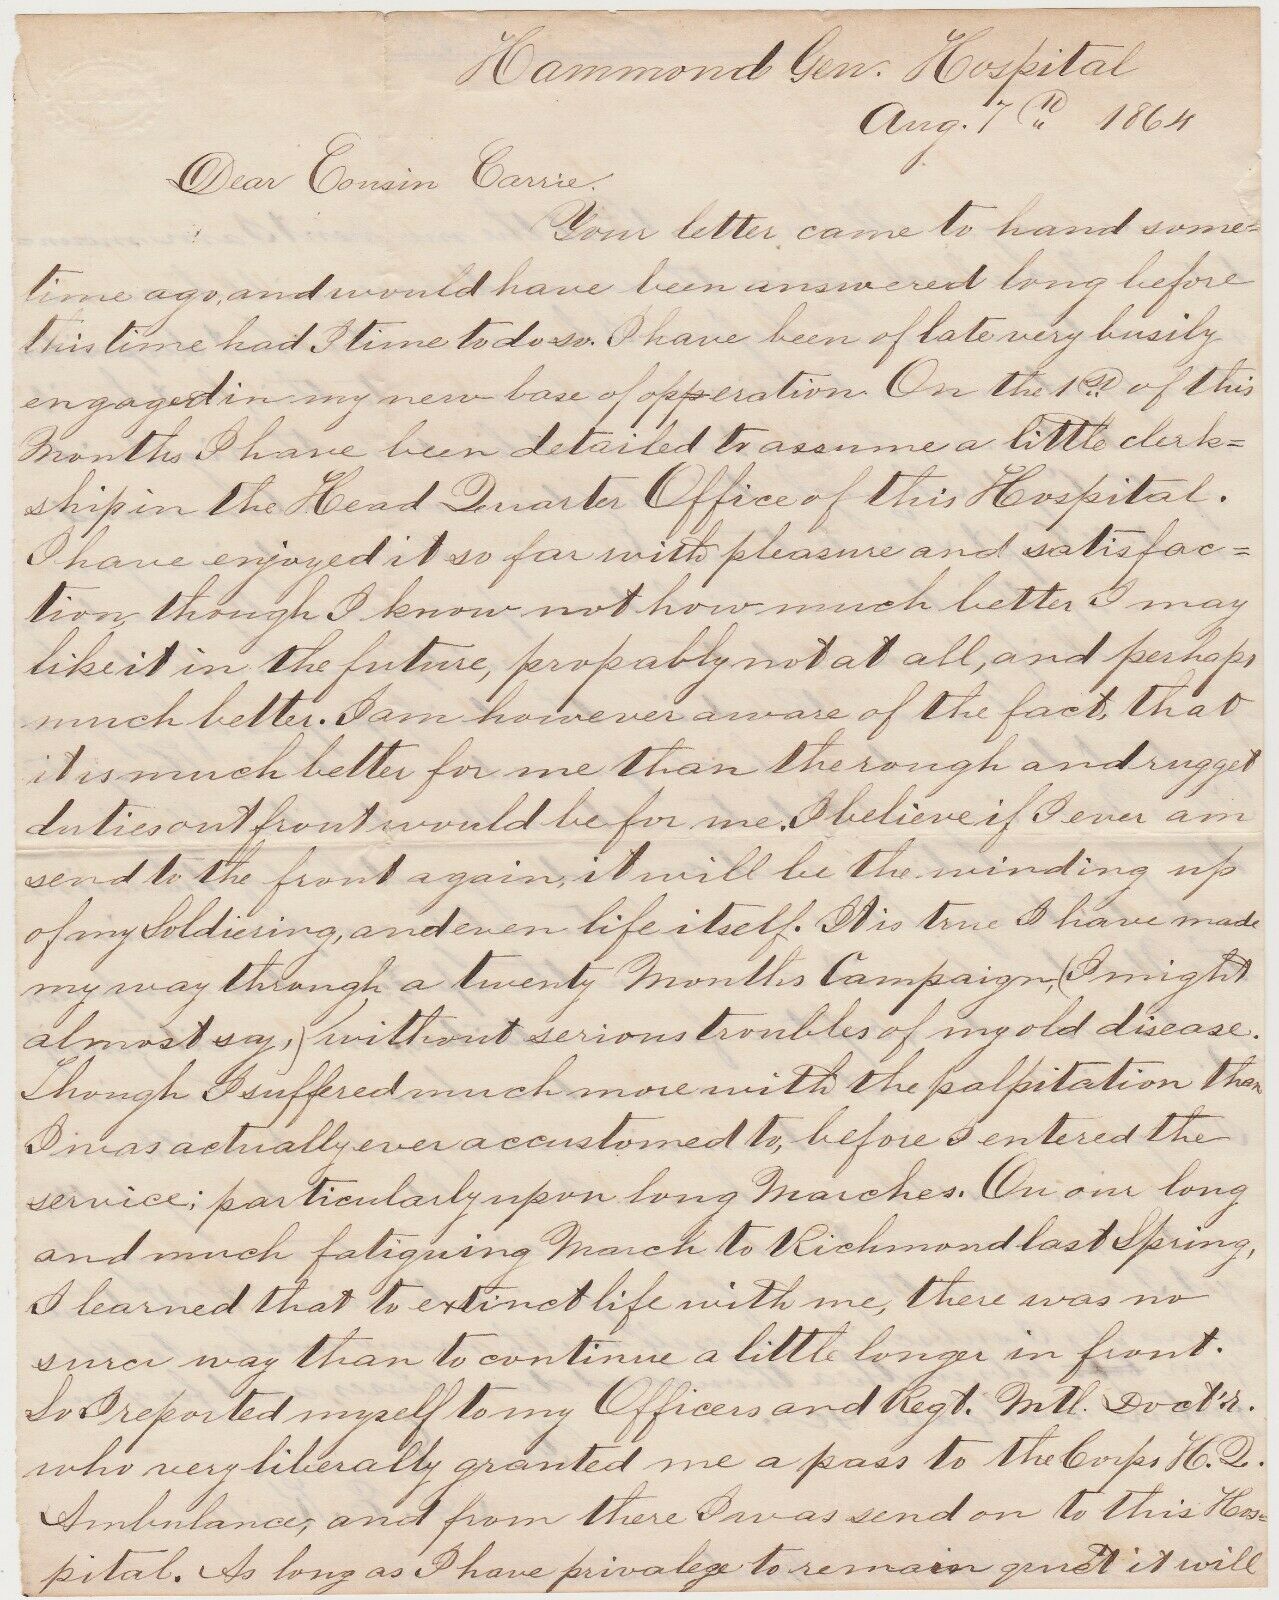 Hammond Gen. Hospital
Aug. 7th 1864
Dear Cousin Carrie.
Your letter came to hand some=
time ago, and would have been answered long before
this time had I time to do so. I have been of late very busily
engaged in my new base of opperation. On the 1st of this
Months I have been detailed to assume a little clerk=
ship in the Head Quarter Office of this Hospital.
I have enjoyed it so far with pleasure and satisfac=
tion, though I know not how much better I may
like it in the future, propably not at all, and perhaps
much better. I am however aware of the fact, that
it is much better for me than the rough and rugget
duties out front would be for me. I believe if I ever am
send to the front again, it will be the winding up
of my Soldiering, and even life itself. It is true I have made
my way through a twenty Months Campaign, (I might
almost say,) without serious troubles of my old disease.
Though I suffered much more with the palpitation than
I was actually ever accustomed to, before I entered the
service; particularly upon long Marches. On our long
and much fatiguing March to Richmond last Spring,
I learned that to extinct life with me, there was no
surer way than to continue a little longer in front.
So I reported myself to my Officers and Regt. Mtl. Doct'r.
who very liberally granted me a pass to the Corps H. Q.
Ambulance, and from there I was send on to this Hos=
pital. As long as I have privalege to remain quiet it will